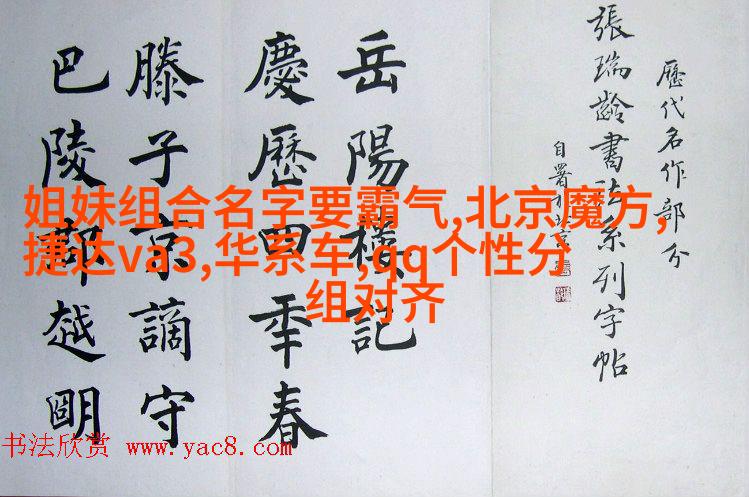 歷代名作部分
張瑞齡書法系列字帖
自署
岳陽樓記
慶歷四年春
滕子京謫守
巴陵郡越明
姐妹组合名字要霸气,北京魔方,
捷达va3,华系车,qq个性分
组对齐
书法欣赏 www.yac8.com